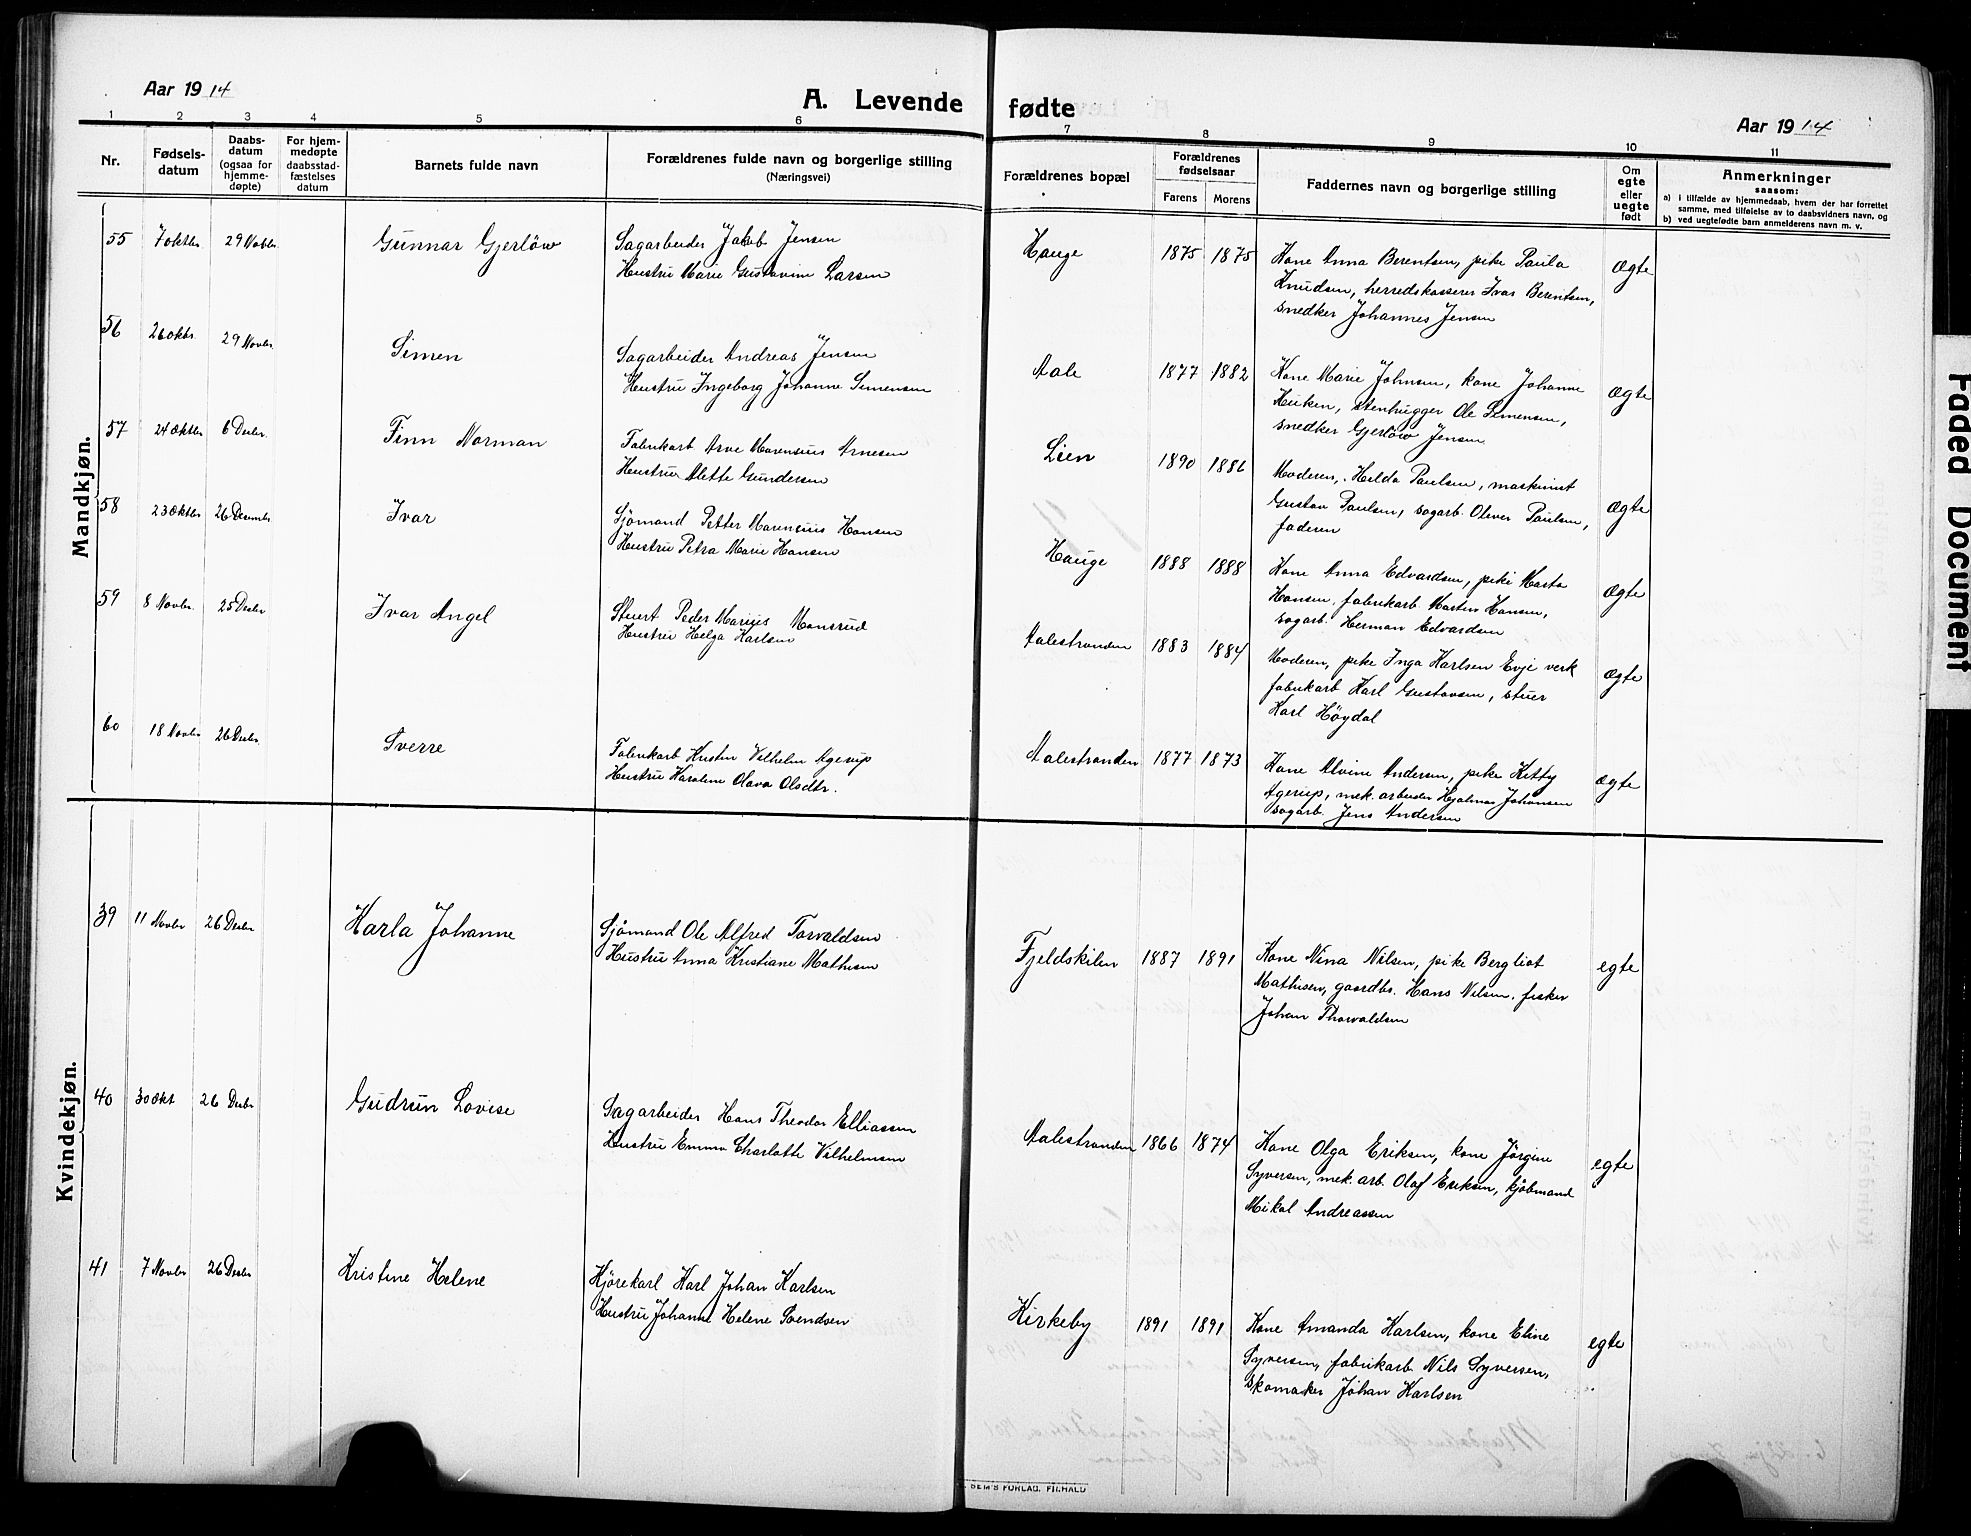 Aar 1914
A. Levende fødte
Aar 1914
1 2 3 4 5 6 7 8 9 10 11
Nr.
Fødsels-
datum
Daabs-
datum
(ogsaa for
hjemme-
døpte)
For hjem-
medøpte
daabsstad-
fæstelses
datum
Barnets fulde navn
Forældrenes fulde navn og borgerlige stilling
(Næringsvei)
Forældrenes bopæl
Forældrenes
fødselsaar
Farens Morens
Faddernes navn og borgerlige stilling
Om
egte
eller
uegte
født
Anmerkninger
saasom:
a) i tilfælde av hjemmedaab, hvem der har forrettet
samme, med tilføielse av to daabsvidners navn, og
b) ved uegtefødte barn anmelderens navn m. v.
Mandkjøn.
55 7 oktbr 29 Novbr. Gunnar Gjerløw
Sagarbeider Jakob Jensen
Hustru Marie Gustavine Larsen
Hauge 1875 1875
Kone Anna Berentsen, pike Paula
Knudsen, herredskasserer Ivar Berentsen,
snedker Johannes Jensen
Ægte
56 26 oktbr. 29 Novbr. Simen
Sagarbeider Andreas Jensen
Hustru Ingeborg Johanne Simensen
Aale 1877 1882
Kone Marie Johnsen, kone Johanne
Huken, stenhugger Ole Simensen,
snedker Gjerløw Jensen
Ægte
57 24 Oktbr 6 Decbr. Finn Norman
Fabrikarb Arve Marensius Arnesen
Hustru Alette Gundersen
Lien 1890 1886
Moderen, Hilda Paulsen, maskinist
Gustav Paulsen, sagarb. Oliver Paulsen,
faderen
Ægte
58 23 Oktbr 26 Decembr Ivar
Sjømand Petter Marensius Hansen
Hustru Petra Marie Hansen
Hauge 1888 1888
Kone Anna Edvardsen, pike Marta
Hansen, fabrikarb. Martin Hansen,
sagarb. Herman Edvardsen
Ægte
59 8 Novbr. 25 Decbr Ivar Angel
Stuert Peder Marius Monsrud
Hustru Helga Karlsen
Aalestranden 1883 1884
Moderen, pike Inga Karlsen Evje verk
fabrikarb Karl Gustavsen, stuer
Karl Høydal
Ægte
60 18 Novbr 26 Decbr. Sverre
Fabrikarb Kristen Vilhelm Agerup
Hustru Karoline Olava Olsdtr.
Aalestranden 1877 1873
Kone Alvine Andersen, pike Kitty
Agerup, mek. arbeider Hjalmar Johansen
sagarb. Jens Andersen
Ægte
Kvindekjøn.
39 11 Novbr 26 Decbr Karla Johanne
Sjømand Ole Alfred Torvaldsen
Hustru Anna Kristiane Mathisen
Fjeldskilen 1887 1891
Kone Nina Nilsen, pike Bergliot
Mathisen, gaardbr. Hans Nilsen, fisker
Johan Thorvaldsen
egte
40 30 Okt 26 Decbr Gudrun Lovise
Sagarbeider Hans Theodor Elliassen
Hustru Emma Charlotte Vilhelmsen
Aalestranden 1866 1874
Kone Olga Eriksen, kone Jørgine
Syversen, mek. arb. Olaf Eriksen, kjøbmand
Mikal Andreassen
egte
41 7 Novbr 26 Decbr Kristine Helene
Kjørekarl Karl Johan Karlsen
Hustru Johanne Helene Svendsen
Kirkeby 1891 1891
Kone Amanda Karlsen, kone Eline
Syversen, fabrikarb Nils Syversen,
skomaker Johan Karlsen
egte
SEM'S FORLAG, FR.HALD
Faded Document